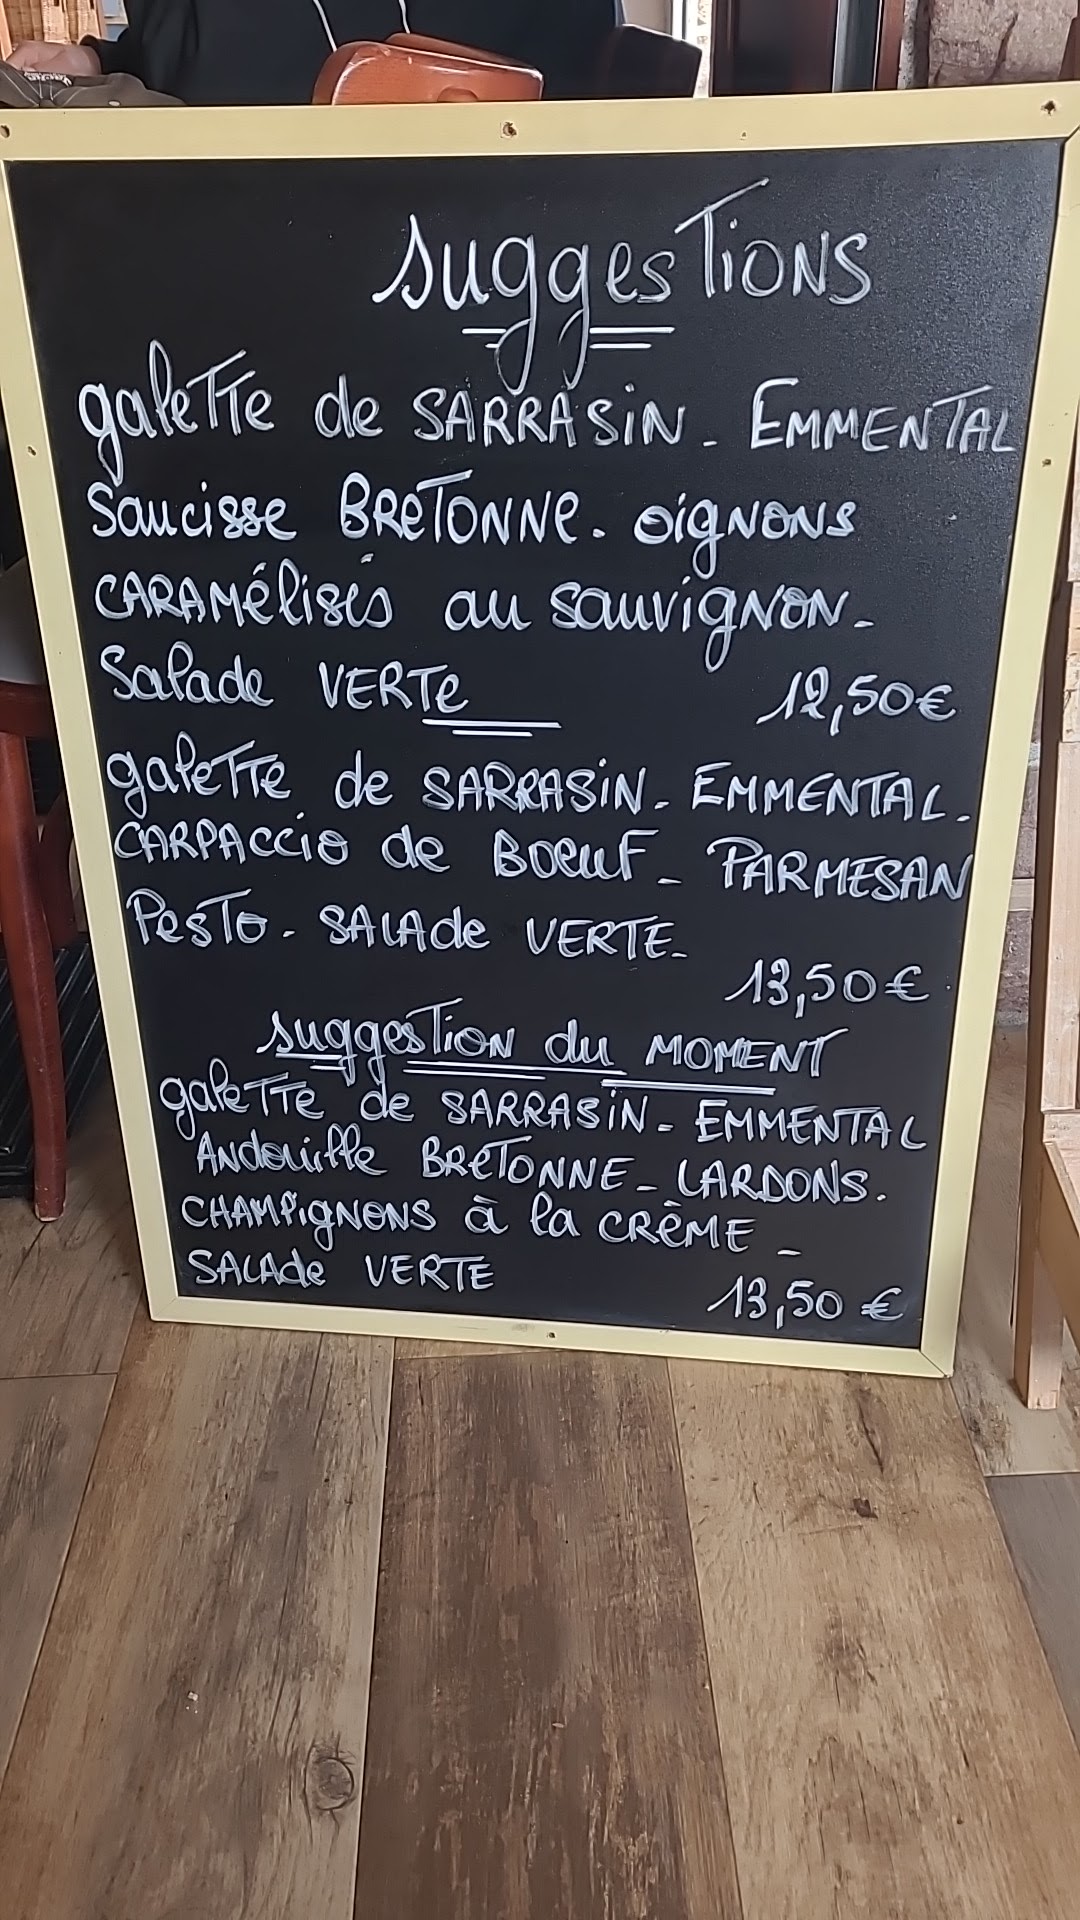 suggestions
galette de SARRASIN - EMMENTAL
Saucisse BRETONNE - oignons
CARAMélisés au sauvignon -
Salade VERTE
12,50€
galette de SARRASIN - EMMENTAL -
CARPACCIO de Boeuf - PARMESAN
Pesto - SALAde VERTE -
13,50€
suggestion du MOMENT
galette de SARRASIN - EMMENTAL
Andouille BRETONNE - LARDONS.
CHAMPIGNONS à la CRÈME -
SALAde VERTE
13,50 €